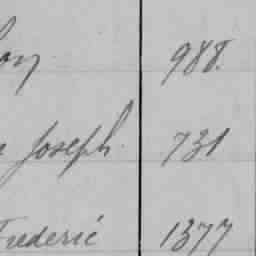 988.
Joseph. 731
Frederic 1377